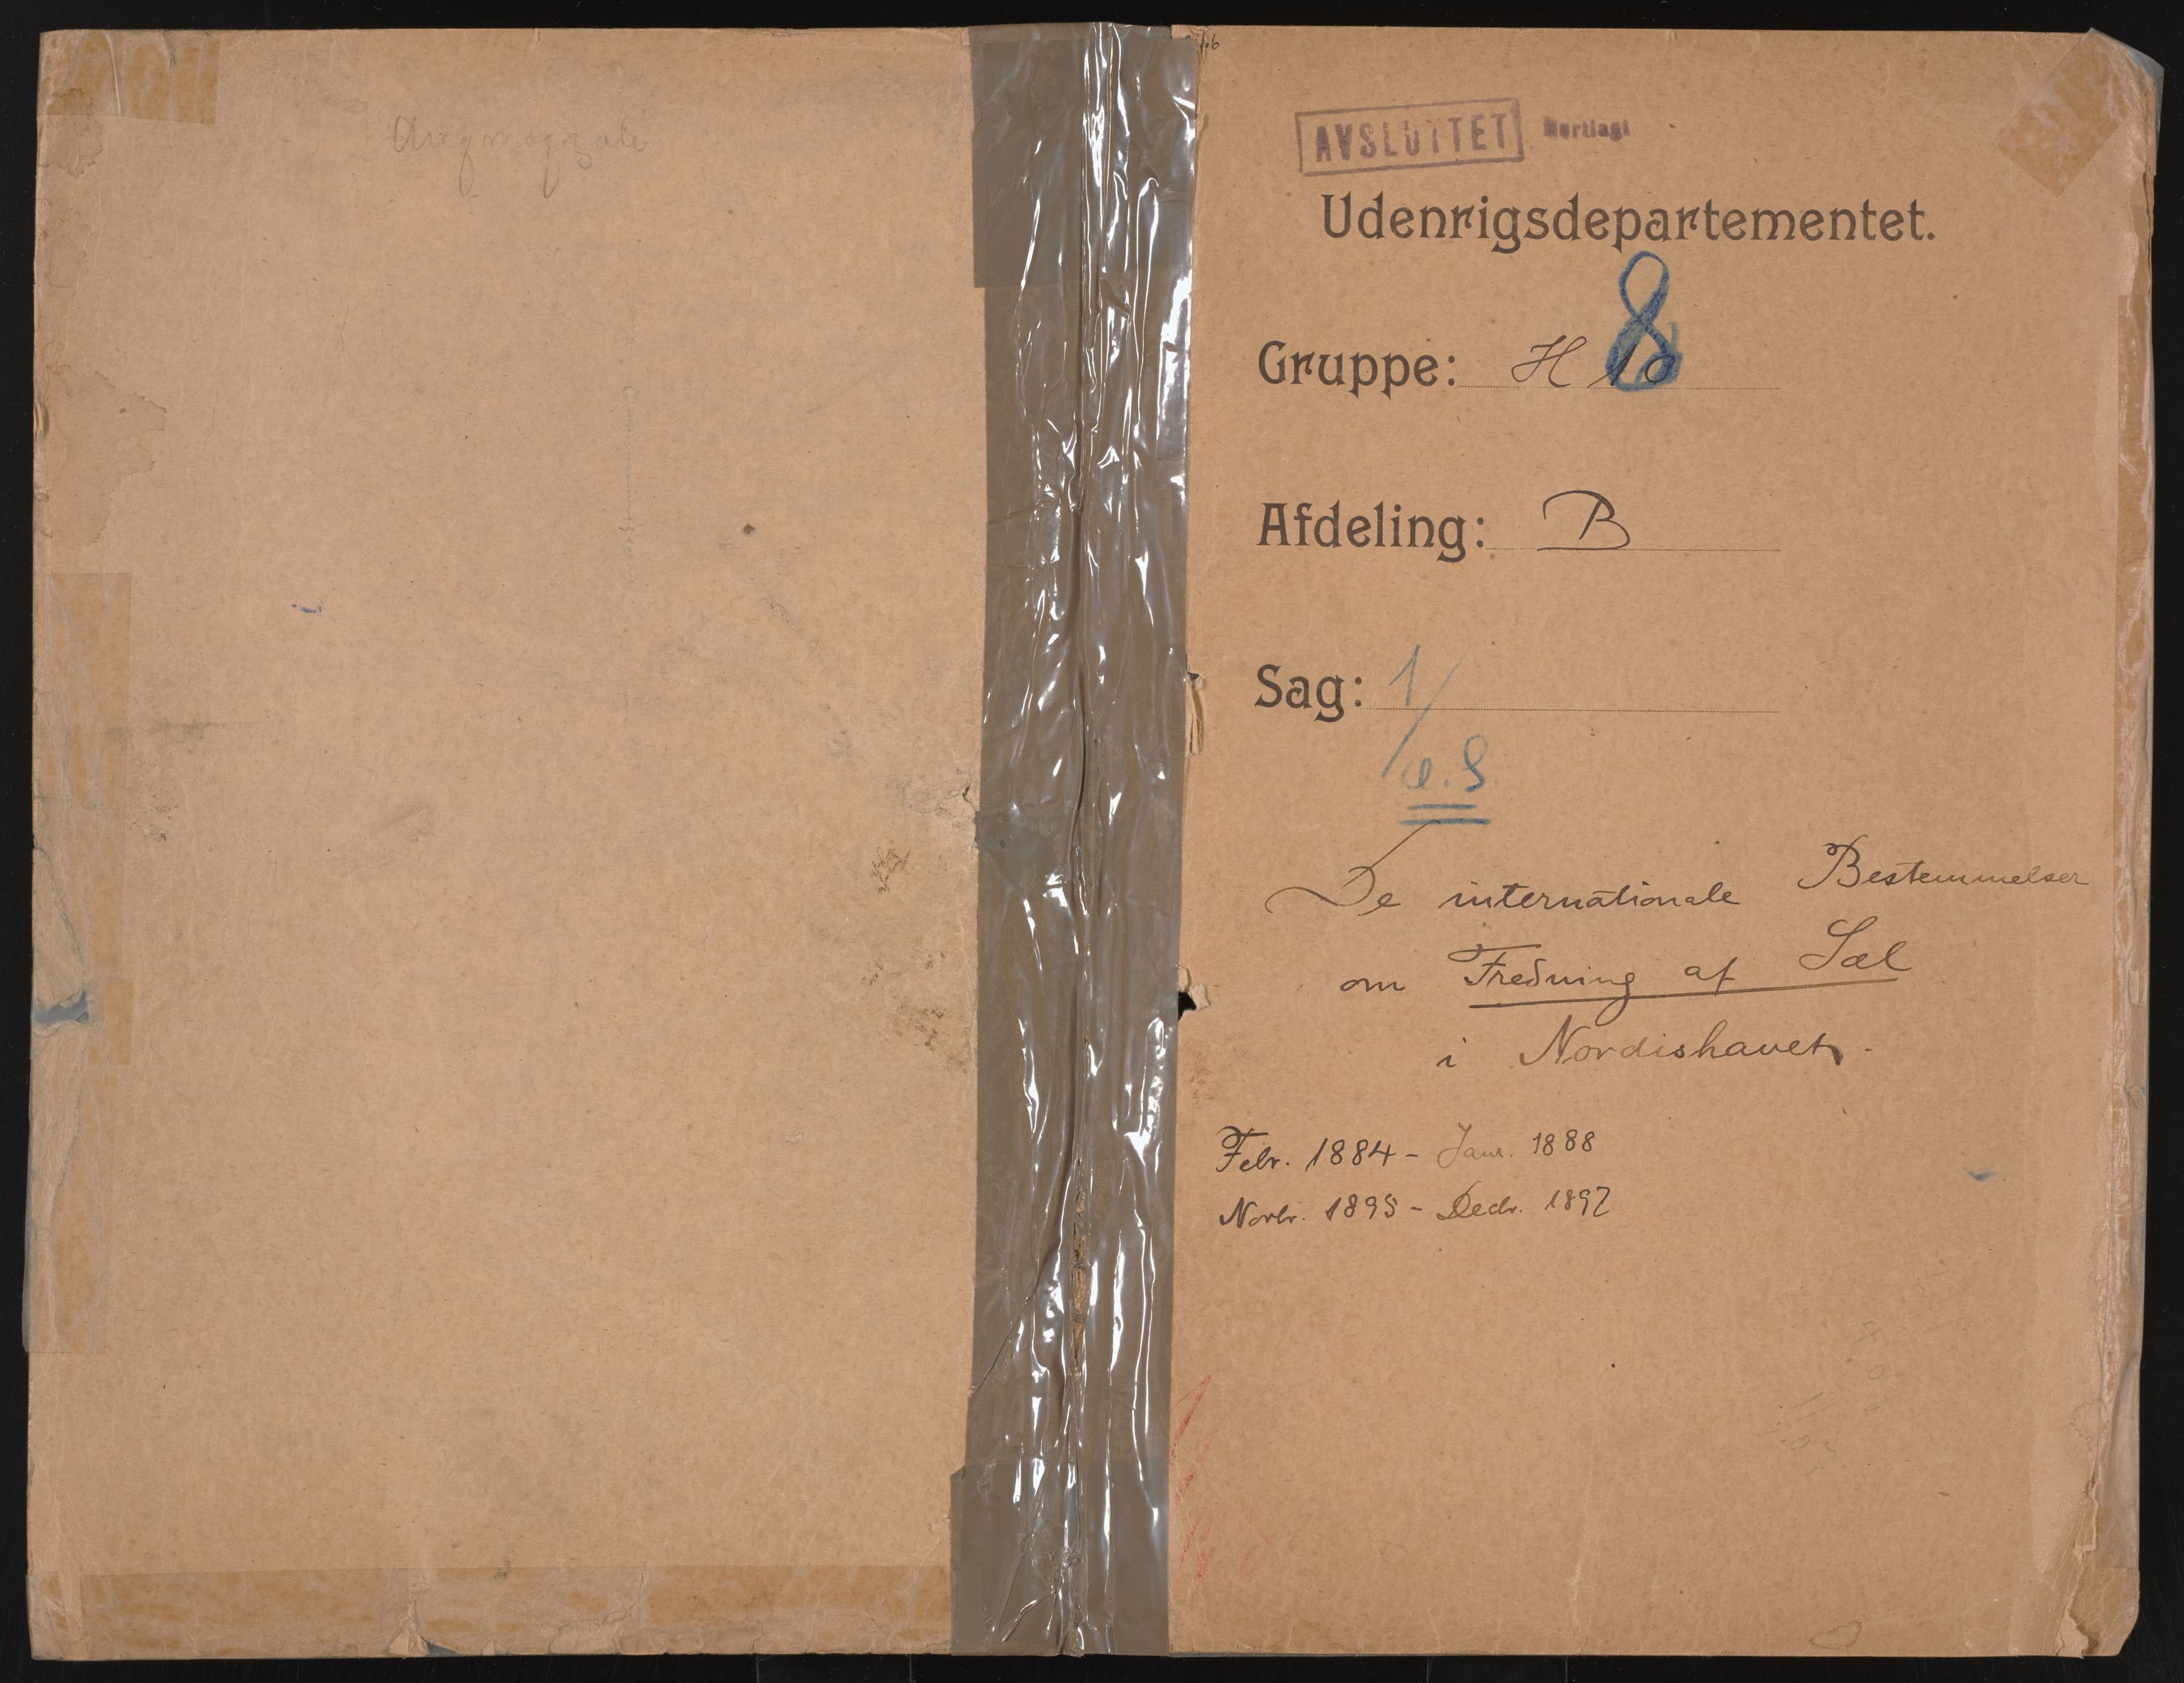 AVSLUTTET Bortlagt
Udenrigsdepartementet.
Gruppe: H 8
Afdeling: B
Sag: 1/
De internationale Bestemmelser
om Fredning af Sæl
i Nordishavet.
Febr. 1884 - Janr. 1888
Novbr. 1895 - Decbr. 1897